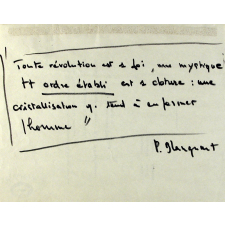 Toute révolution est 1 foi, une mystique
Tt ordre établi est 1 cloture : une
cristallisation q. tend à enfermer
l'homme "
P. Blanquart